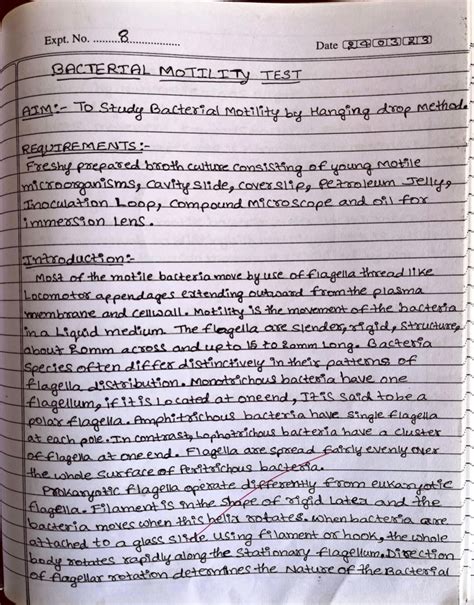 Expt. No. 8
Date 240323
BACTERIAL MOTILITY TEST
AIM:- To Study Bacterial Motility by Hanging drop Method.
REQUIREMENTS:-
Freshy prepared broth culture consisting of young Motile
microorganisms, Cavity slide, coverslip, Petroleum Jelly,
Inoculation Loop, Compound Microscope and oil for
immersion lens.
Introduction:-
Most of the motile bacteria move by use of flagella thread like
Locomotor appendages extending outward from the plasma
membrane and cellwall. Motility is the movement of the bacteria
in a Liquid medium. The flagella are slender, rigid, structure,
about 20mm across and up to 15 to 20mm Long. Bacteria
Species often differ distinctively in their patterns of
flagella distribution. Monotrichous bacteria have one
flagellum, if it is Located at one end, It is said to be a
polar flagella. Amphitrichous bacteria have single flagella
at each pole. In contrast, Lophotrichous bacteria have a cluster
of flagella at one end. Flagella are spread fairly evenly over
the whole surface of Peritrichous bacteria.
Prokaryotic flagella operate differently from eukaryotic
flagella. Filament is in the shape of rigid Latex and the
bacteria moves when this helix rotates. when bacteria are
attached to a glass slide using filament or hook, the whole
body rotates rapidly along the Stationary flagellum. Direction
of flagellar rotation determines the Nature of the Bacterial